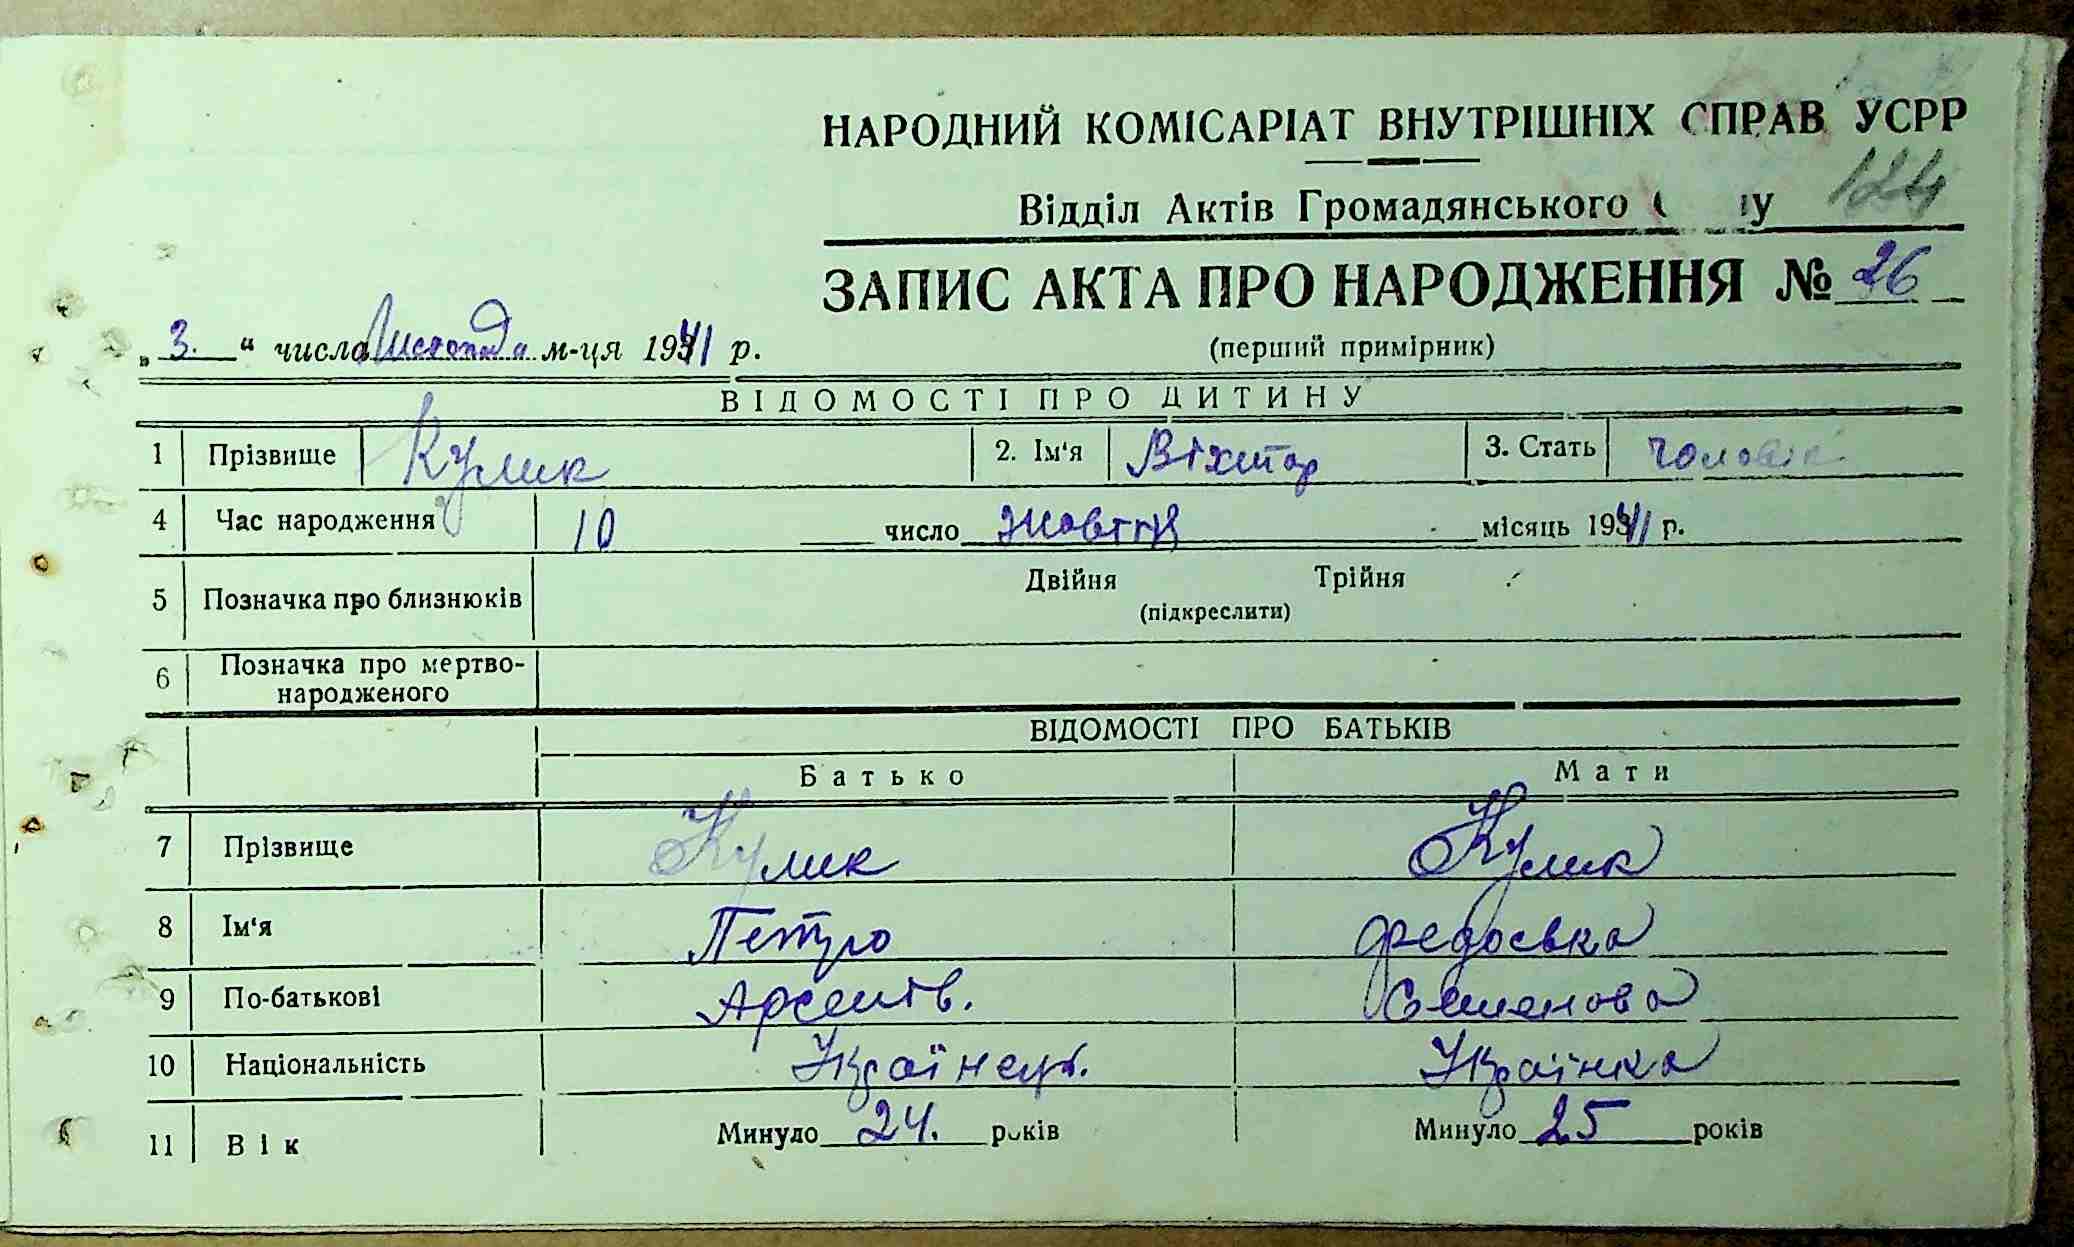 НАРОДНИЙ КОМІСАРІАТ ВНУТРІШНІХ СПРАВ УСРР
Відділ Актів Громадянського 124
ЗАПИС АКТА ПРО НАРОДЖЕННЯ № 26
(перший примірник)
„3.“ числа Листопада м-ця 1941 р.
ВІДОМОСТІ ПРО ДИТИНУ
1 Прізвище Кулик 2. Ім'я Віктор 3. Стать чоловік
4 Час народження 10 число Жовтня місяць 1941 р.
5 Позначка про близнюків Двійня Трійня
(підкреслити)
6 Позначка про мертво-
народженого
ВІДОМОСТІ ПРО БАТЬКІВ
Батько Мати
7 Прізвище Кулик Кулик
8 Ім'я Петро Федоська
9 По-батькові Арсентів. Семенова
10 Національність Українец. Українка
11 Вік Минуло 24. років Минуло 25 років